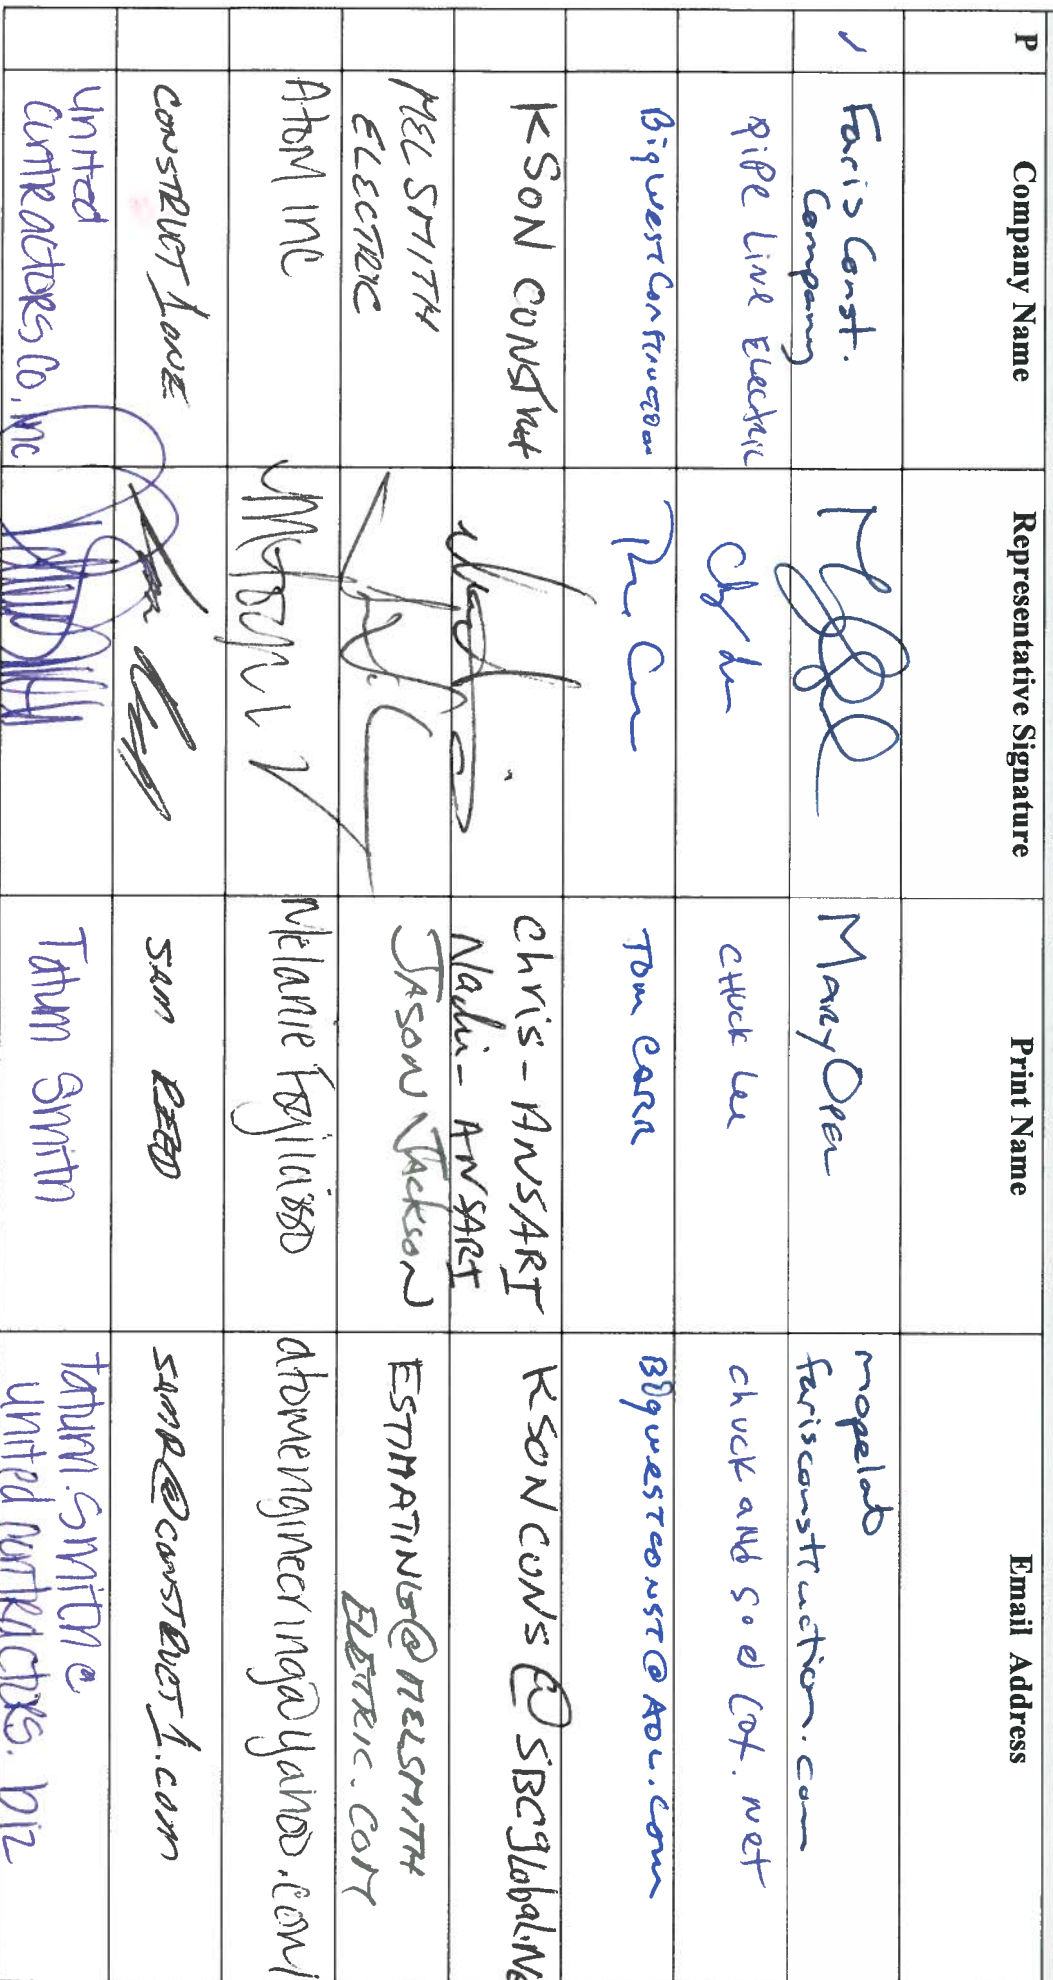 P Company Name Representative Signature Print Name Email Address
Faris Const. Company Mary Oper mopel@ farisconstruction.com
Pipe Line Electric Chuck Lee chuck and so @ Cox.net
Bigwest Construction Tom Carr Bigwestconst@AOL.com
KSON CONSTruct Chris-ANSARI Nadi-ANSARI KSONCONS@SBCglobal.Ne
MEL SMITH ELECTRIC JASON JACKSON ESTIMATING@MELSMITH ELECTRIC.COM
Atom Inc Melanie atomengineering@yahoo.com
CONSTRUCT 1 ONE SAM REED SAMR@CONSTRUCT1.COM
United Contractors Co, Inc Tatum Smith Tatum.Smith@ unitedcontractors.biz